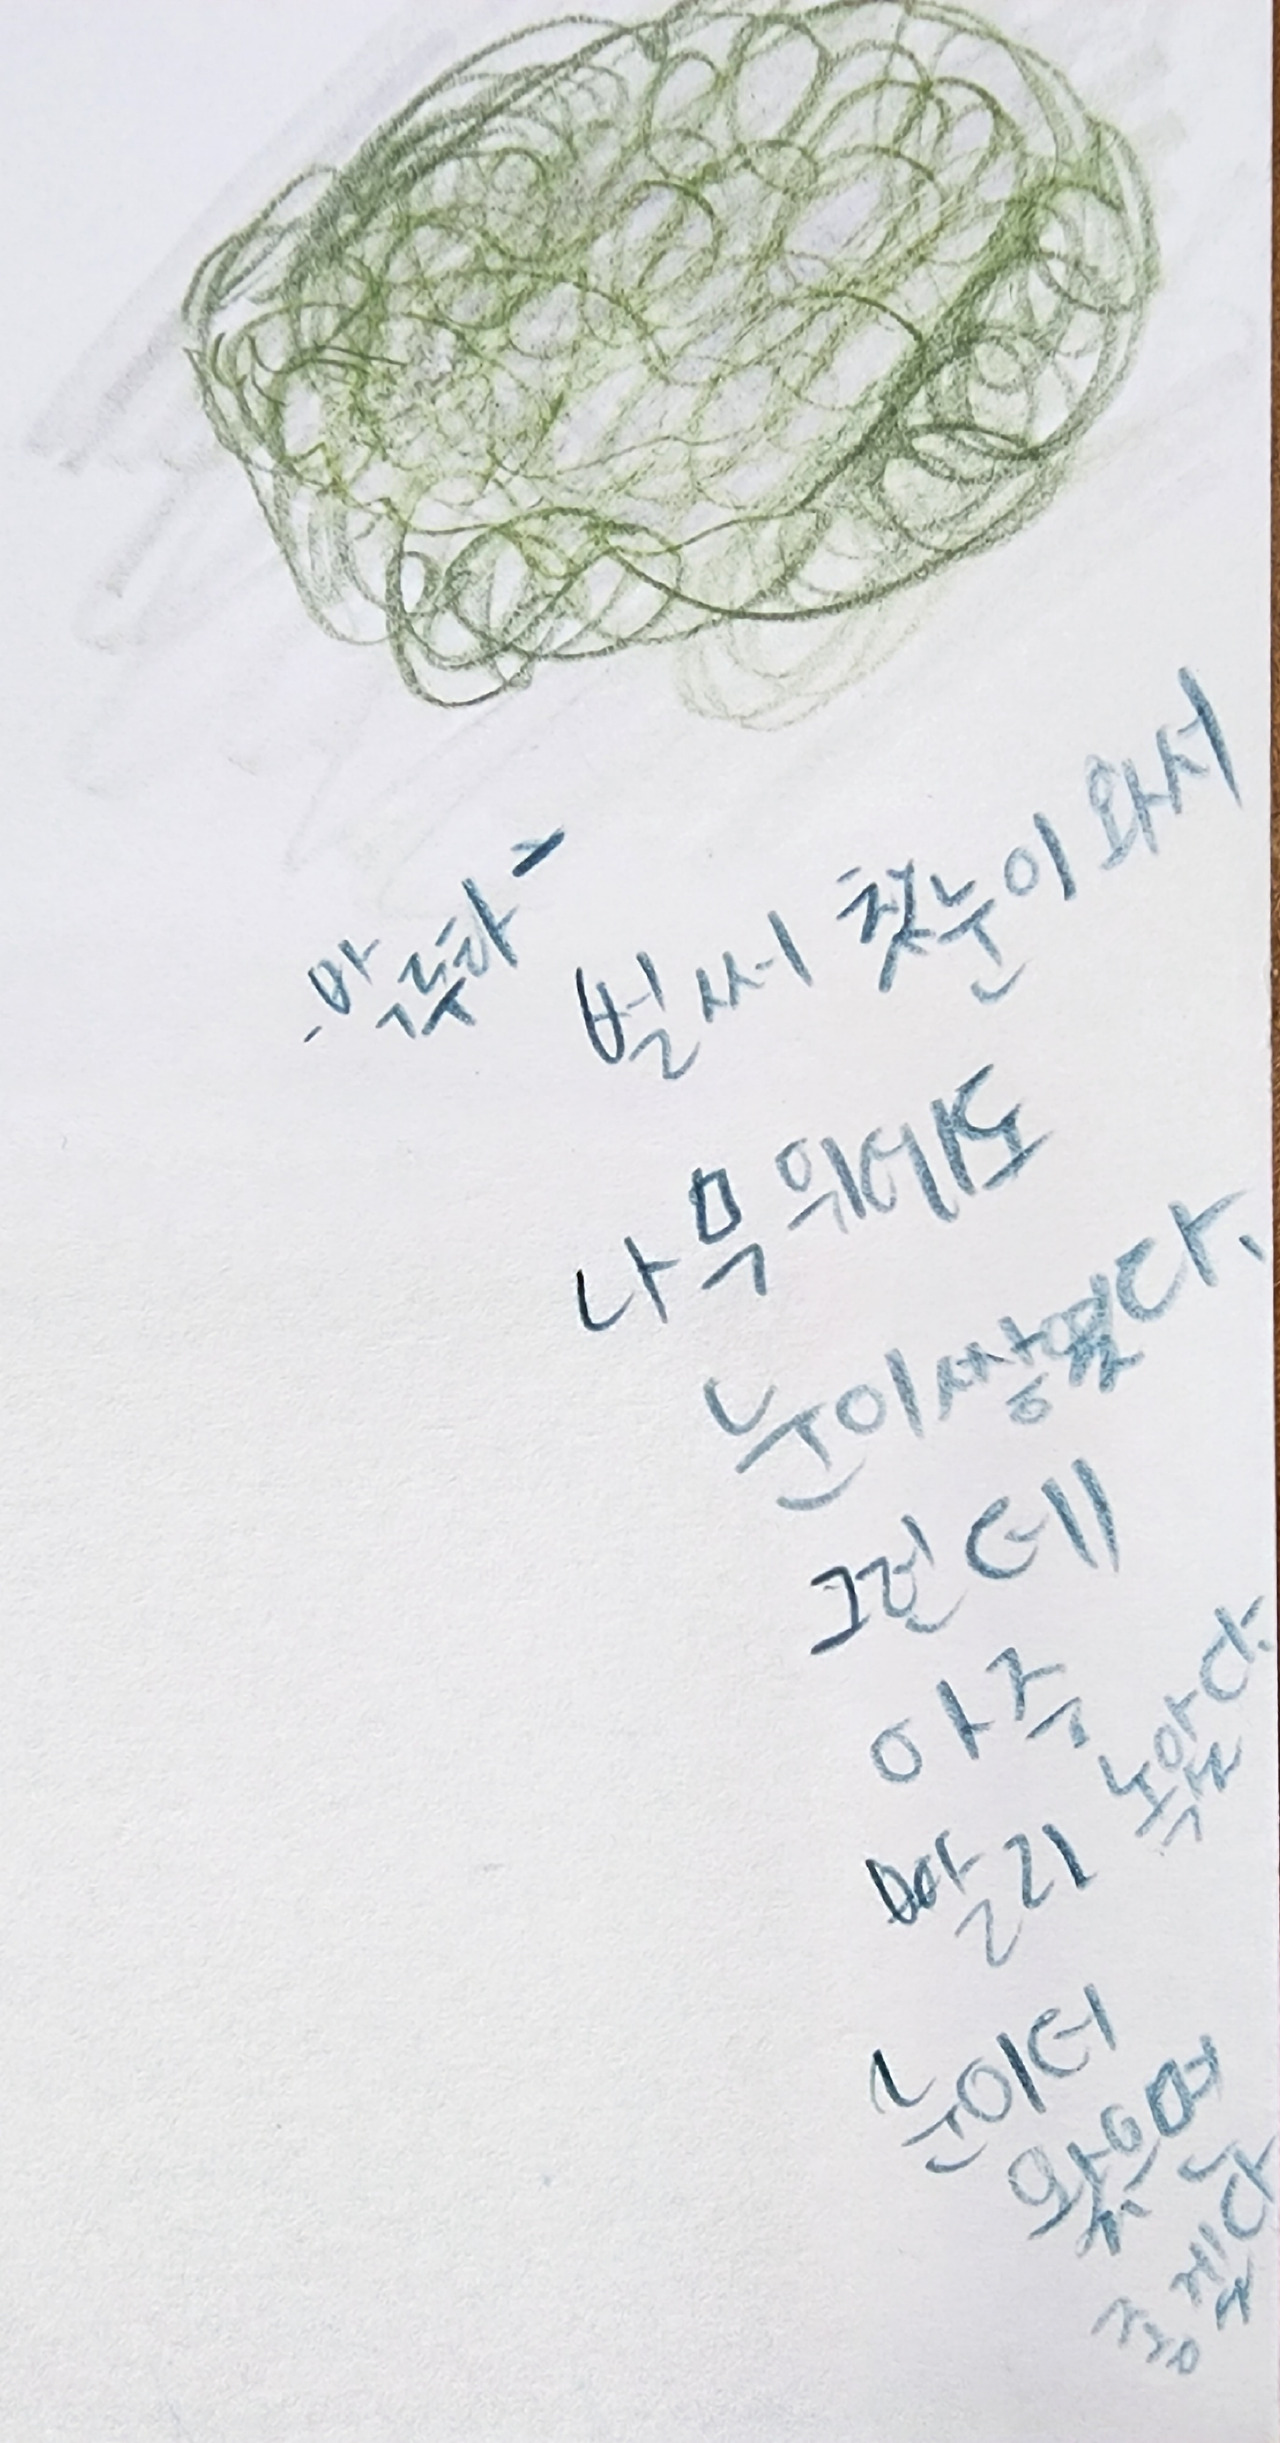 - 박주하 -
벌써 첫눈이 와서
나무 위에도
눈이 쌍였다.
그런데
아주
빨리 녹았다.
눈이 더
왔으면
좋겠다